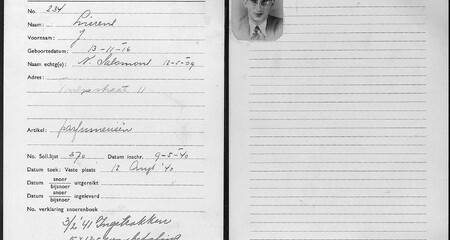 No. 234
Naam: Lierens
Voornaam: J
Geboortedatum: 13-11-16
Naam echtg(e): N. Salomons 13-5-09
Adres:
straat 11
Artikel: parfumerieën
No. Soll.lijst 370 Datum inschr. 9-5-'40
Datum toek: Vaste plaats 12 Aug '40
Datum snoer bijsnoer uitgereikt
Datum snoer bijsnoer ingeleverd
No. verklaring snoerenboek
3/2 '41 Ingetrokken